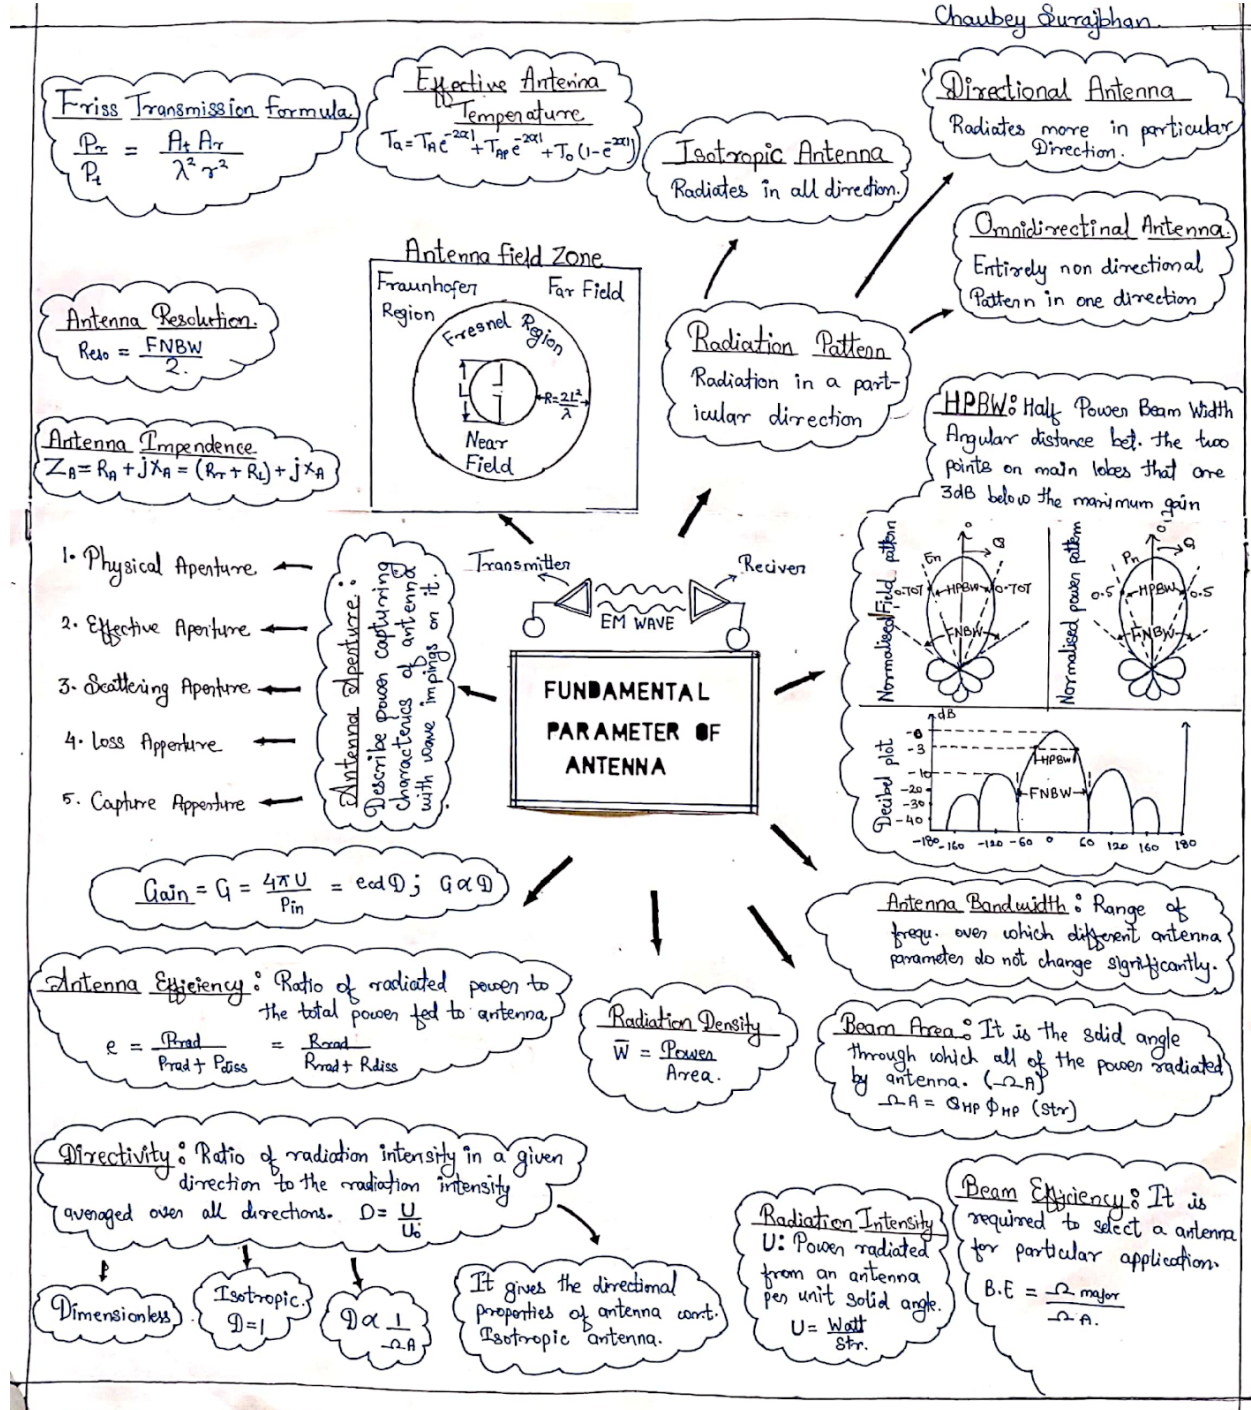 Chaubey Surajbhan.
Friss Transmission formula
Pr/Pt = At Ar / λ² r²
Effective Antenna
Temperature
Ta = TA e^-2αl + TAP e^-2αl + To (1-e^-2αl)
Isotropic Antenna
Radiates in all direction.
Directional Antenna
Radiates more in particular
Direction.
Omnidirectinal Antenna.
Entirely non directional
Pattern in one direction
Antenna field Zone
Fraunhofer
Region
Far Field
Fresnel Region
L
R = 2L²/λ
Near
Field
Antenna Resolution.
Reso = FNBW/2.
Radiation Pattern
Radiation in a part-
icular direction
Antenna Impendence
ZA = RA + jXA = (Rr + RL) + jXA
HPBW: Half Power Beam Width
Angular distance bet. the two
points on main lobes that are
3dB below the maximum gain
Normalised Field pattern
En
0.707
HPBW
0.707
FNBW
Normalised power pattern
Pn
0.5
HPBW
0.5
FNBW
Decibel plot
dB
-0
-3
-10
-20
-30
-40
HPBW
FNBW
-180 -160 -120 -60 0 60 120 160 180
1. Physical Aperture
2. Effective Aperture
3. Scattering Aperture
4. Loss Apperture
5. Capture Apperture
Antenna Aperture:
Describe power capturing
characterics of antenna
with wave impings on it.
Transmitter
Reciver
EM WAVE
FUNDAMENTAL
PARAMETER OF
ANTENNA
Gain = G = 4πU/Pin = ecd D; G∝D
Antenna Bandwidth: Range of
frequ. over which different antenna
parameter do not change significantly.
Antenna Efficiency: Ratio of radiated power to
the total power fed to antenna
e = Prad / Prad + Pdiss = Rrad / Rrad + Rdiss
Radiation Density
W̅ = Power/Area.
Beam Area: It is the solid angle
through which all of the power radiated
by antenna. (ΩA)
ΩA = θHP ΦHP (Str)
Directivity: Ratio of radiation intensity in a given
direction to the radiation intensity
averaged over all directions. D = U/Uo
Dimensionless
Isotropic.
D=1
D ∝ 1/ΩA
It gives the directional
properties of antenna w.r.t.
Isotropic antenna.
Radiation Intensity
U: Power radiated
from an antenna
per unit solid angle.
U = Watt/Str.
Beam Efficiency: It is
required to select a antenna
for particular application.
B.E = Ω major / ΩA.